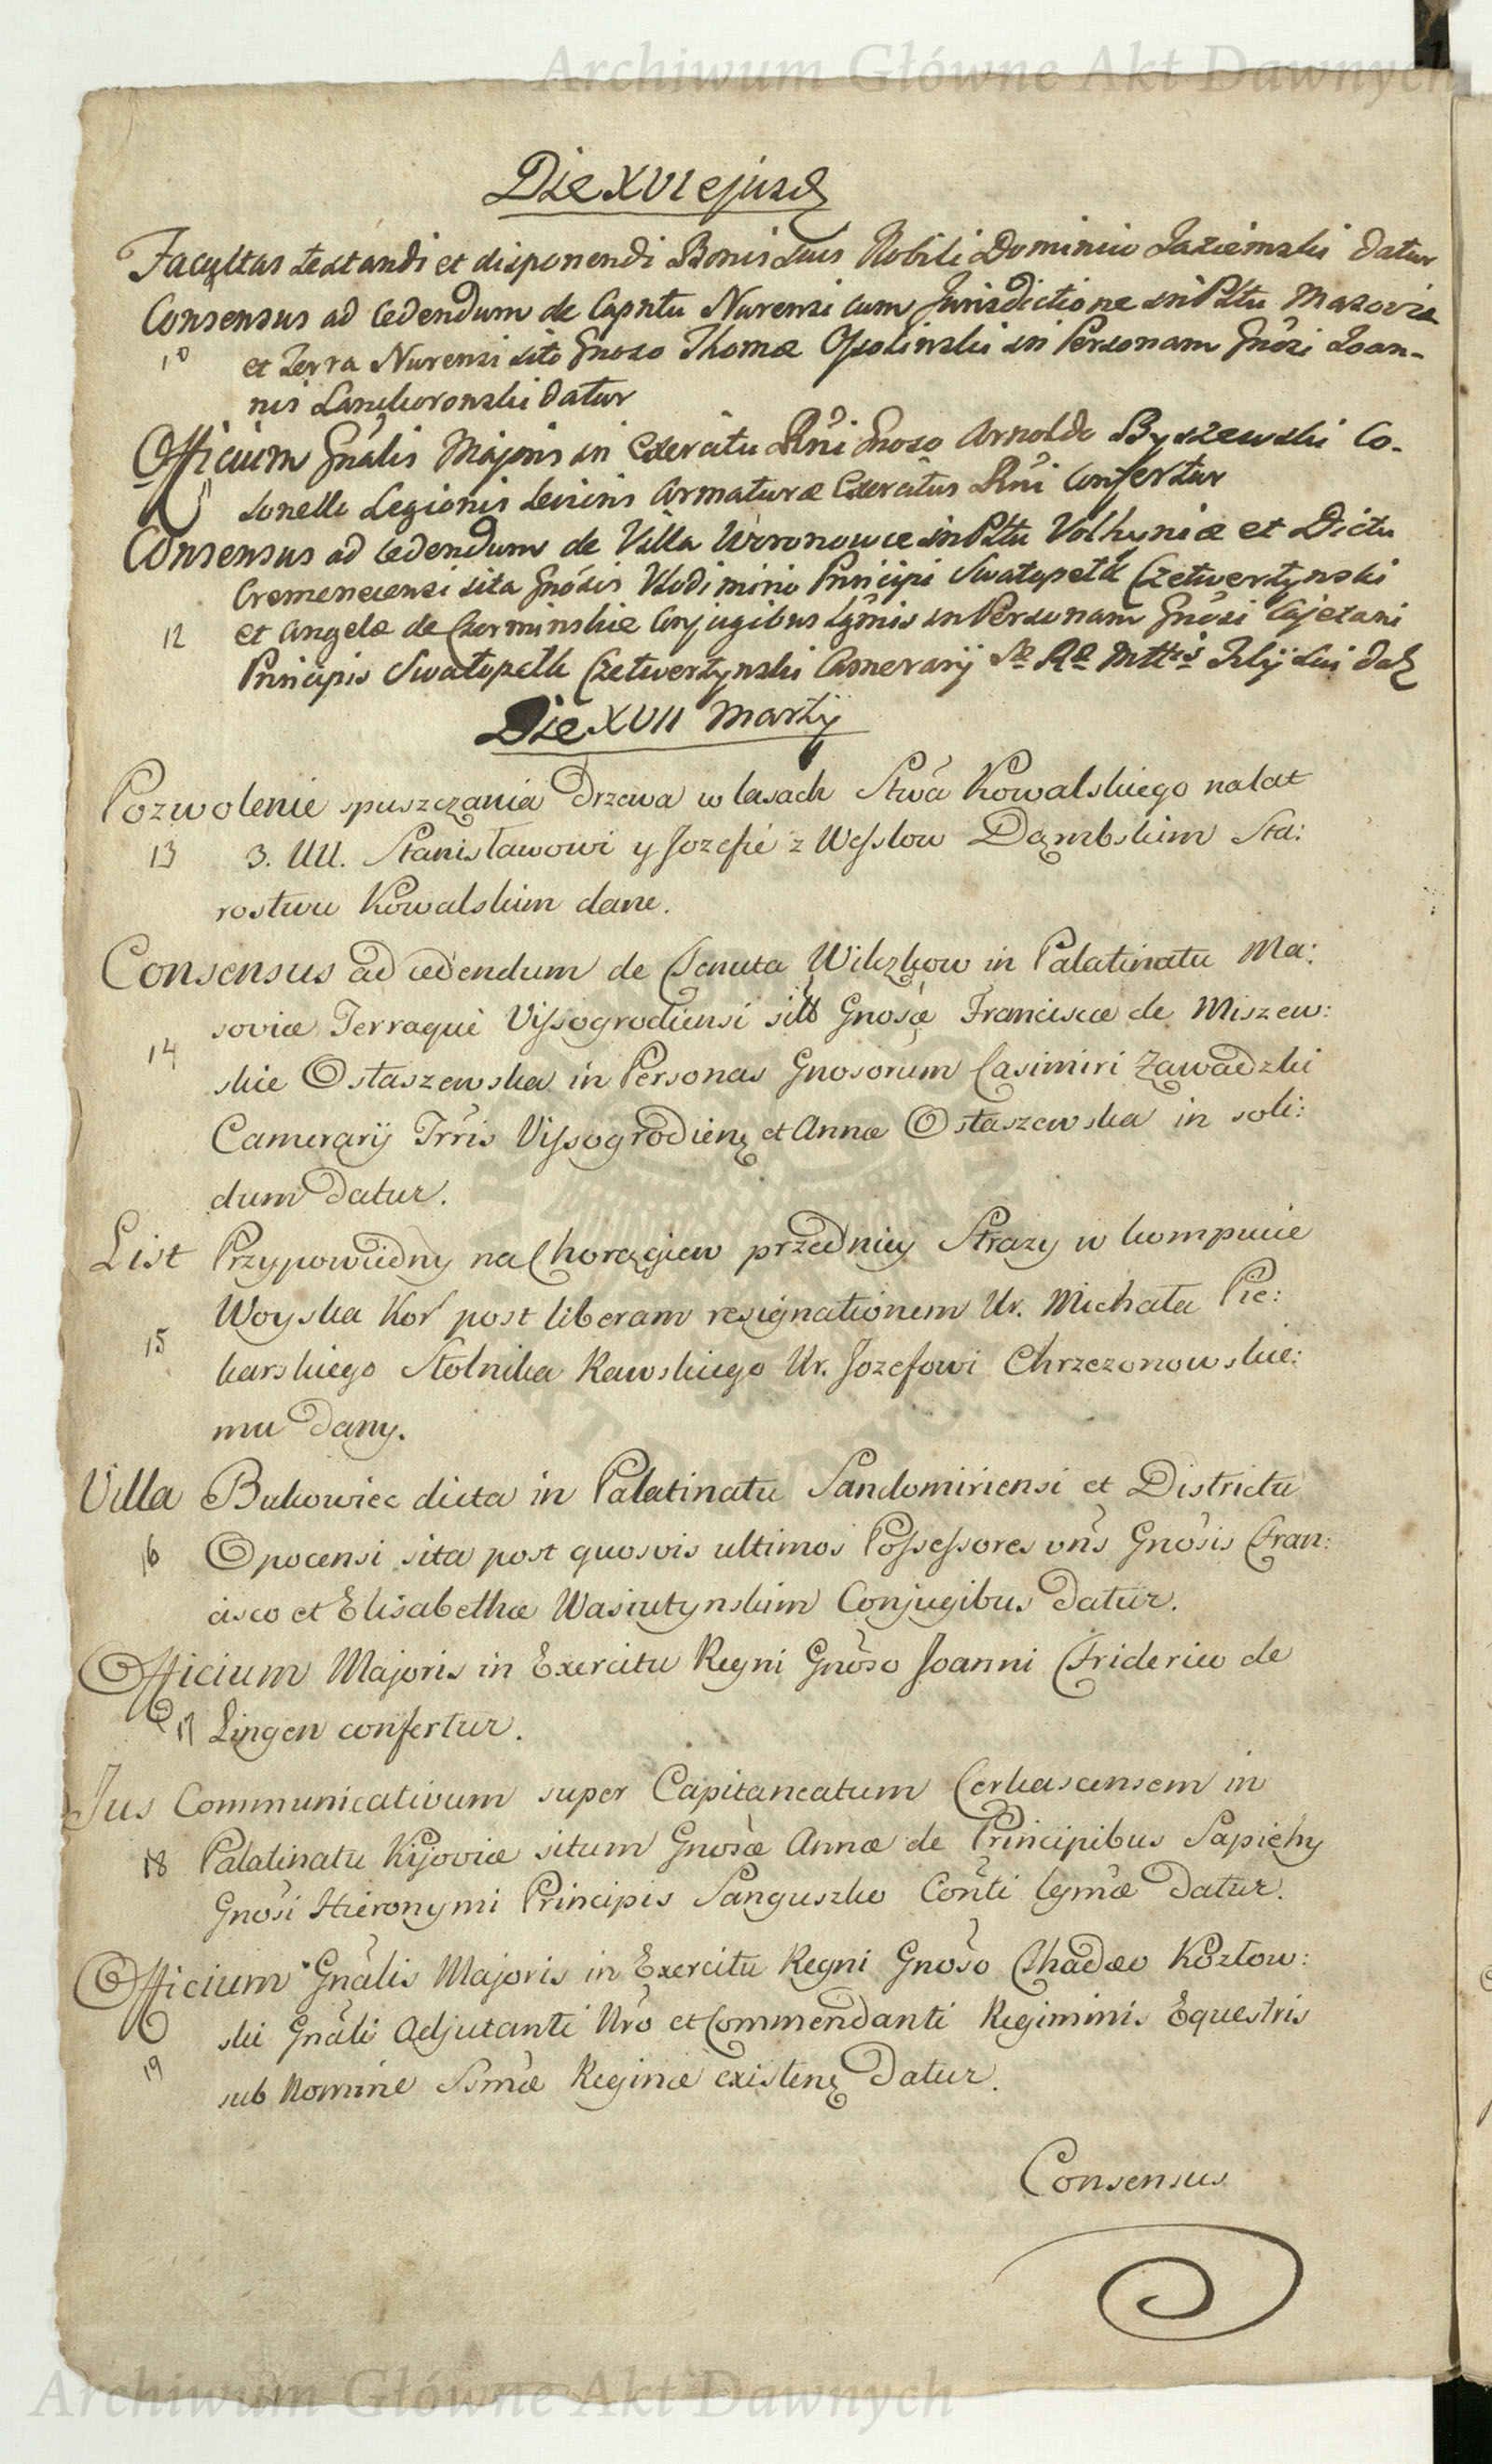 Archiwum Główne Akt Dawnych
Die XVI ejusd
Facultas testandi et disponendi Bonis suis Nobili Dominico Jaziemski datur
Consensus ad cedendum de Capntu Nurensi cum Jurisdictione in Pltu Masoviæ
10 et Terra Nurensi sito Gnoso Thomæ Ossolinski in Personam Gnosi Joan-
nis Lanckoronski datur
Officium Gnalis Majoris in Exercitu Rni Gnoso Arnoldo Byszewski Co-
11 lonello Legionis Levioris Armaturæ Exercitus Rni confertur
Consensus ad cedendum de Villa Woronowce in Pltu Volhyniæ et Dictu
Cremenecensi sita Gnosis Vlodimirio Principi Swatopełk Czetwertynski
12 et Angelæ de Czerminskie Conjugibus Lgmis in Personam Gnosi Cajetani
Principis Swatopełk Czetwertynski Camerarij Sæ Ræ Mttis Filij sui dat
Die XVII Martij
Pozwolenie spuszczania Drzewa w lasach Stwa Kowalskiego na lat
13 3. UU. Stanisławowi y Jozefie z Wesslow Dąmbskim Sta:
rostwu Kowalskim dane.
Consensus ad cedendum de Tenuta Wilczkow in Palatinatu Ma:
soviæ Terraque Vissogrodiensi sita Gnosæ Franciscæ de Miszew:
14 skie Ostaszewska in Personas Gnosorum Casimiri Zawadzki
Camerarij Trris Vissogrodien et Annæ Ostaszewska in soli:
dum datur.
List Przypowiedny na Chorągiew przedniey Strazy w kompucie
Woyska Kor post liberam resignationem Ur. Michała Pie:
15 karskiego Stolnika Rawskiego Ur. Jozefowi Chrzczonowskie:
mu dany.
Villa Bukowiec dicta in Palatinatu Sandomiriensi et Districtu
16 Opocensi sita post quosvis ultimos Possessores vris Gnosis Fran:
cisco et Elisabethæ Wasiutynskim Conjugibus datur.
Officium Majoris in Exercitu Regni Gnoso Joanni Friderico de
17 Lingen confertur.
Jus Communicativum super Capitaneatum Cerkascensem in
18 Palatinatu Kijoviæ situm Gnosæ Annæ de Principibus Sapiehy
Gnosi Hieronymi Principis Sanguszko Conti lgmæ datur.
Officium Gnalis Majoris in Exercitu Regni Gnoso Thadæo Kozłow:
ski Gnali Adjutanti Nro et Commendanti Regiminis Equestris
19 sub Nomine Ssmæ Reginæ existen datur.
Consensus
Archiwum Główne Akt Dawnych